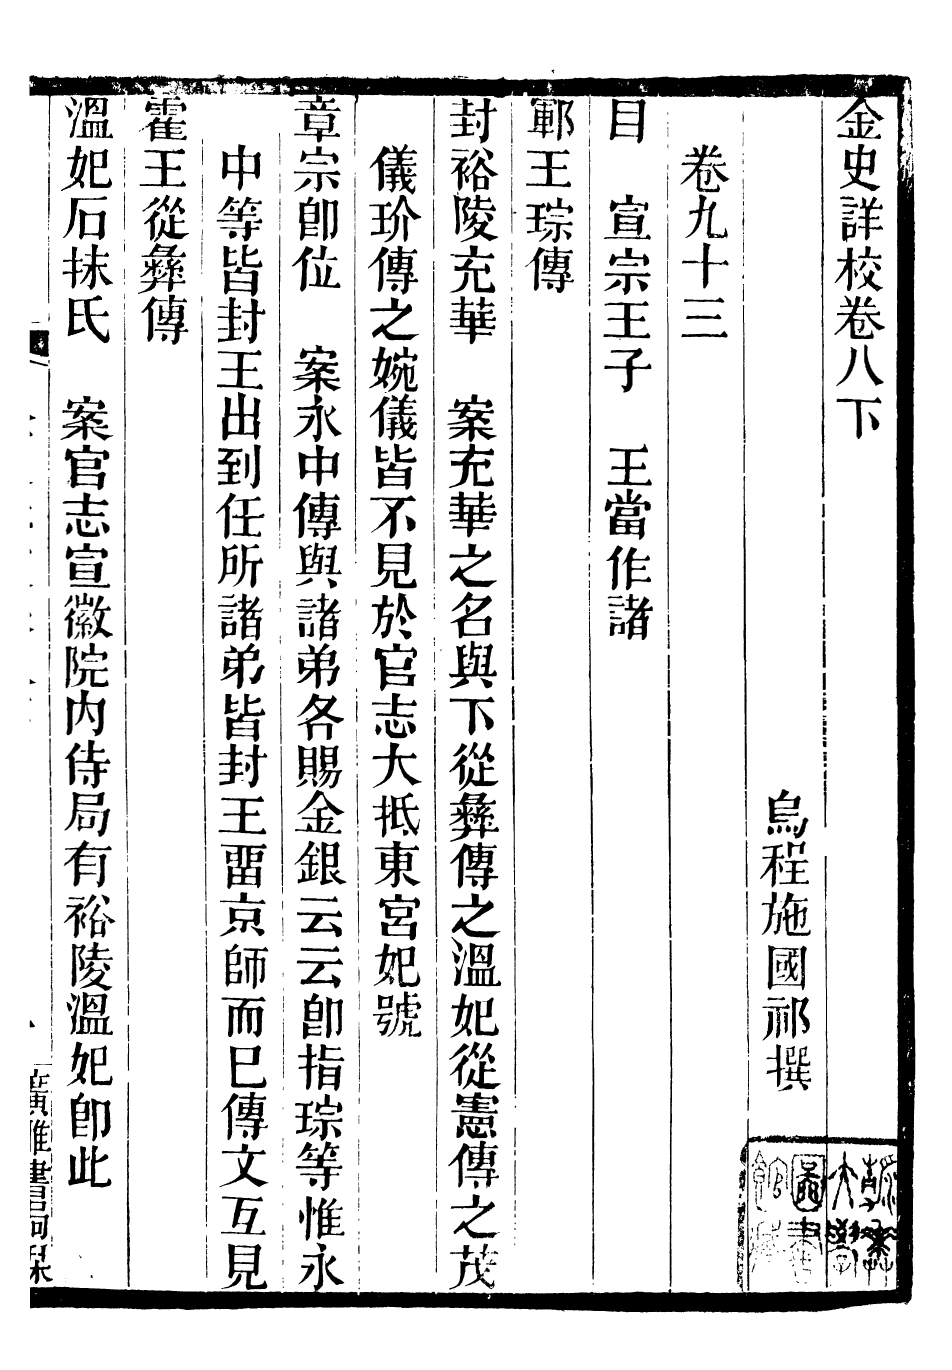 金史詳校卷八下
烏程施國祁撰
卷九十三
目　宣宗王子　王當作諸
鄆王琮傳
封裕陵充華　案充華之名與下從彝傳之溫妃從憲傳之茂
儀玠傳之婉儀皆不見於官志大抵東宮妃號
章宗卽位　案永中傳與諸弟各賜金銀云云卽指琮等惟永
中等皆封王出到任所諸弟皆封王畱京師而已傳文互見
霍王從彝傳
溫妃石抹氏　案官志宣徽院內侍局有裕陵溫妃卽此
廣雅書局栞